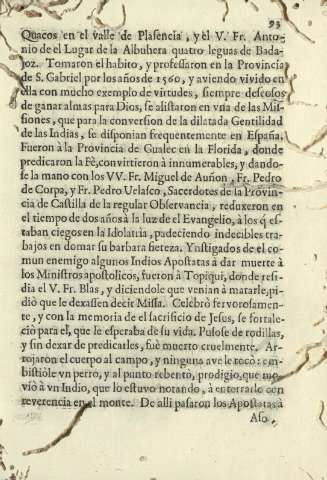 93
Quacos en el valle de Plasencia, y el V. Fr. Anto-
nio de el Lugar de la Albuhera quatro leguas de Bada-
joz. Tomaron el habito, y professaron en la Provincia
de S. Gabriel por los años de 1560, y aviendo vivido en
ella con mucho exemplo de virtudes, siempre deseosos
de ganar almas para Dios, se alistaron en vna de las Mis-
siones, que para la conversion de la dilatada Gentilidad
de las Indias, se disponian frequentemente en España.
Fueron à la Provincia de Gualec en la Florida, donde
predicaron la Fè, convirtieron à innumerables, y dando-
se la mano con los VV. Fr. Miguel de Auñon, Fr. Pedro
de Corpa, y Fr. Pedro Velasco, Sacerdotes de la Provin-
cia de Castilla de la regular Observancia, reduxeron en
el tiempo de dos años à la luz de el Evangelio, à los q̃ es-
taban ciegos en la Idolatria, padeciendo indecibles tra-
bajos en domar su barbara fiereza. Ynstigados de el co-
mun enemigo algunos Indios Apostatas à dar muerte à
los Ministros apostolicos, fueron à Topiqui, donde resi-
dia el V. Fr. Blas, y diciendole que venian à matarle, pi-
diò que le dexassen decir Missa. Celebrò fervorosamen-
te, y con la memoria de el sacrificio de Jesus, se fortale-
ciò para el, que le esperaba de su vida. Pusose de rodillas,
y sin dexar de predicarles, fuè muerto cruelmente. Ar-
rojaron el cuerpo al campo, y ninguna ave le tocò: em-
bistiòle vn perro, y al punto rebentò, prodigio, que mo-
viò à vn Indio, que lo estuvo notando, à enterrarle con
reverencia en el monte. De alli pasaron los Apostatas à
Aso